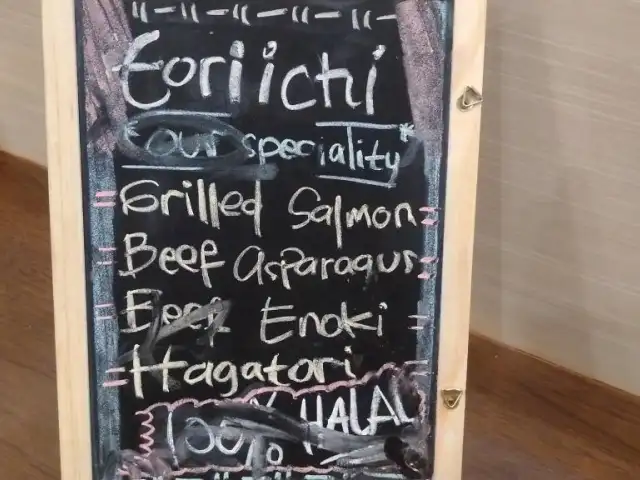 Toriichi
*our speciality*
Grilled Salmon
Beef Asparagus
Beef Enoki
Hagatori
100% HALAL